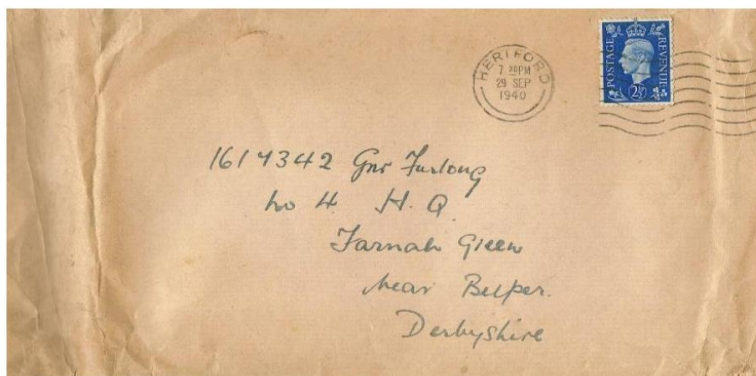 HERTFORD
7 30PM
29 SEP
1940
POSTAGE
REVENUE
2½
1614342 Gnr Furlong
No 4 H.Q.
Farnah Green
near Belper.
Derbyshire